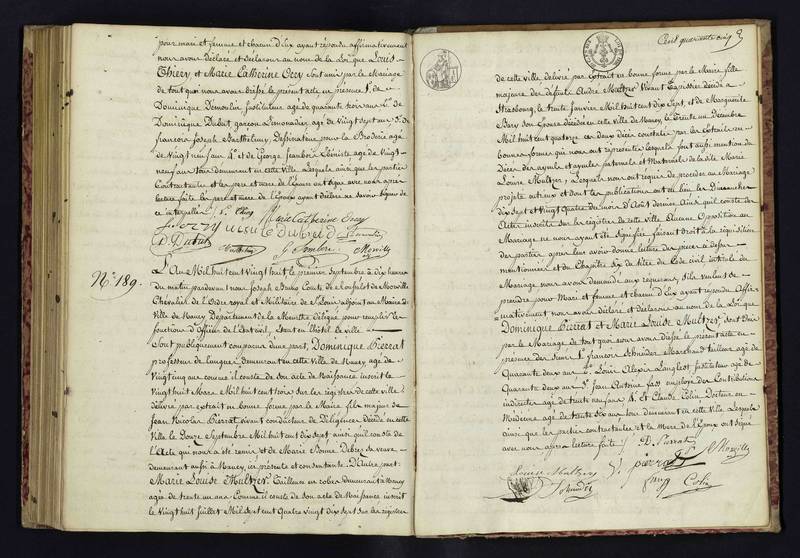 pour mari et femme et chacun d'eux ayant répondu affirmativement
nous avons déclaré et déclarons au nom de la Loi que Louis
Thiery et Marie Catherine Orry sont unis par le Mariage
de tout quoi nous avons dressé le présent acte en présence 1° de
Dominique Demoulin, Instituteur agé de quarante trois ans 2° de
Dominique Dubut garçon Limonadier agé de Vingt sept ans 3° de
francois Joseph Barthelemy, Dessinateur pour la Broderie agé
de Vingt neuf ans 4° et de George Jeanbore Ebéniste agé de Vingt
neuf ans tous demeurant en cette Ville lesquels ainsi que les parties
Contractantes et les pere et mere de l'Epoux ont signé avec nous après
lecture faite les pere et mere de l'Epouse ayant déclaré ne savoir signer de
ce interpellés
Marie Catherine Orry
D. Dubut
N° 189.
L'An Mil huit cent Vingt huit le premier Septembre à dix heures
du matin pardevant nous Joseph Bruno Comte de
Chevalier de l'Ordre royal et Militaire de St Louis adjoint au Maire de
Ville de Nancy Département de la Meurthe délégué pour remplir les
fonctions d'Officier de l'Etat civil, Etant en l'hôtel de ville
Sont publiquement comparus d'une part, Dominique Pierrat
professeur de langues demeurant en cette Ville de Nancy agé de
Vingt cinq ans comme il conste de son acte de Naissance inscrit le
Vingt huit Mars Mil huit cent trois sur les registres de cette ville
délivré par extrait en bonne forme par le Maire fils majeur de
Jean Nicolas Pierrat vivant conducteur de Diligences décédé en cette
Ville le Douze Septembre Mil huit cent dix sept ainsi qu'il conste de
l'Acte qui nous a été remis et de Marie Bonne Debres sa veuve
demeurant aussi à Nancy, ici présente et consentante. D'autre part.
Marie Louise Multzer Tailleuse en robes demeurant à Nancy
agée de trente un ans Comme il conste de son acte de Naissance inscrit
le Vingt huit Juillet Mil sept cent Quatre vingt dix sept sur les registres
Cent quarante cinq
de cette ville délivré par extrait en bonne forme par le Maire fille
majeure des défunts André Multzer Vivant Tapissier décédé à
Strasbourg, le trente Janvier Mil huit cent dix Sept, et de Marguerite
Bary son Epouse décédée en cette Ville de Nancy, le Trente un Décembre
Mil huit cent quatorze ces deux décès constatés par les Extraits en
bonne forme qui nous ont représentés lesquels font aussi mention du
Décès des ayeuls et ayeules paternels et Maternels de la dite Marie
Louise Multzer, Lesquels nous ont requis de procéder au Mariage
projeté entr'eux et dont les publications ont eu lieu les Dimanches
dix Sept et Vingt quatre du mois d'Aout dernier Ainsi qu'il conste des
Actes inscrits sur les registres de cette ville Aucune Opposition au
Mariage ne nous ayant été signifiée faisant droit à la réquisition
des parties après leur avoir donné lecture des pieces ci dessus
mentionnées et du Chapitre Six du titre du Code civil intitulé du
Mariage nous avons demandé aux requérans, s'ils veulent se
prendre pour Mari et femme et chacun d'Eux ayant répondu Affir-
mativement nous avons déclaré et déclarons au nom de la Loi que
Dominique Pierrat et Marie Louise Multzer sont Unis
par le Mariage de tout quoi nous avons dressé le présent acte en
présence des Sieurs 1° francois Schneider Marchand tailleur agé de
Quarante deux ans 2° Louis Alexis Langlois Instituteur agé de
Quarante deux ans 3° Jean Antoine employé des Contributions
indirectes agé de trente neuf ans 4° et Claude Colin Docteur en
Médecine agé de trente dix ans tous demeurant en cette Ville Lesquels
ainsi que les parties contractantes et la Mere de l'Epoux ont signé
avec nous après lecture faite
D. Pierrat
Louise Multzer
Schneider
Colin